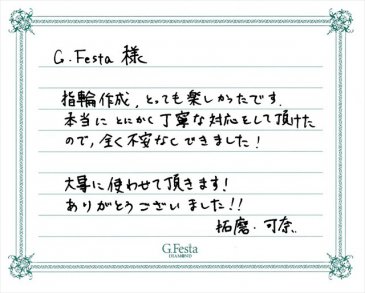 G.Festa 様
指輪作成、とっても楽しかったです.
本当に とにかく丁寧な対応をして頂けた
ので、全く不安なしできました!
大事に使わせて頂きます!
ありがとうございました!!
拓磨・可奈
G.Festa
DIAMOND